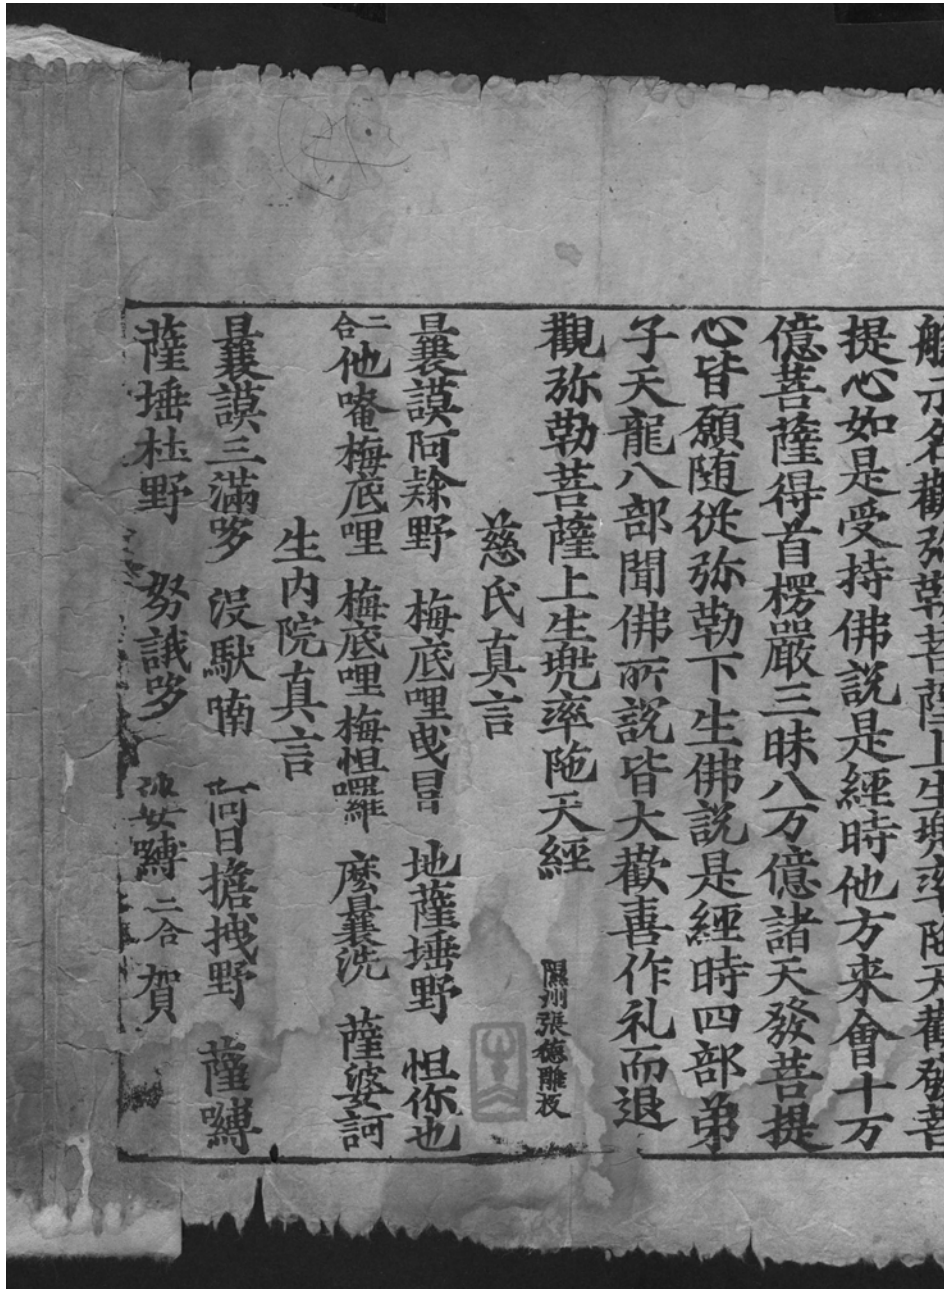 般亦名觀弥勒菩薩上生兜率陁天勸發菩
提心如是受持佛說是經時他方来會十万
億菩薩得首楞嚴三昧八万億諸天發菩提
心皆願随從弥勒下生佛說是經時四部弟
子天龍八部聞佛所說皆大歡喜作礼而退
觀弥勒菩薩上生兜率陁天經
隰州張德雕板
慈氏真言
曩謨阿𨽻野 梅底哩曳冐 地薩埵野 怛你也
二合他唵梅底哩 梅底哩梅怛囉 麼曩洗 薩婆訶
生内院真言
曩謨三滿哆 沒馱喃 阿目擔拽野 薩嚩
薩埵 野 努誐哆 娑嚩二合賀